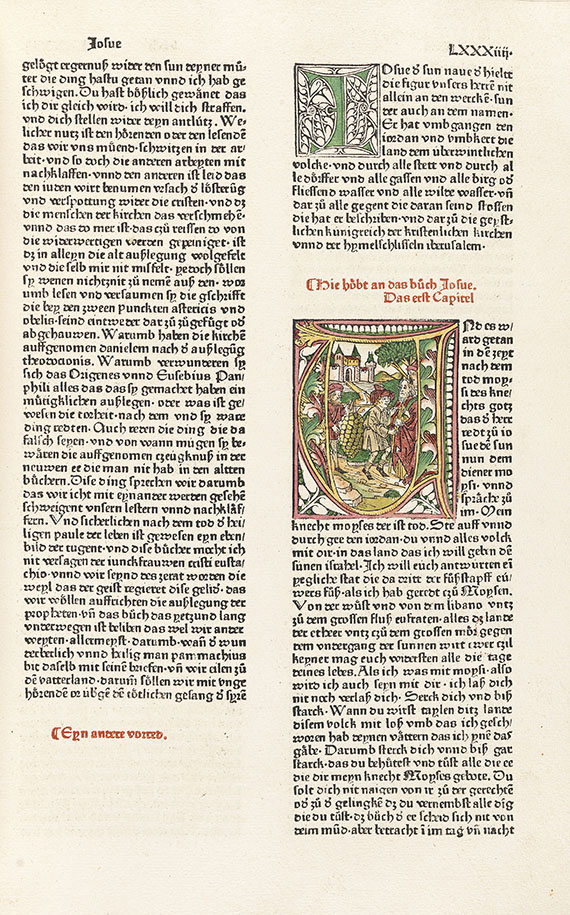 Josue
LXXXiiij.
gelögt ergernuß wider den sun deyner mů-
ter die ding hastu getan vnnd ich hab ge
schwigen. Du hast böblich gewänet das
ich dir gleich wird· ich will dich straffen.
vnd dich stellen wider deyn antlütz. We-
licher nutz ist den hörenden oder den lesenden
das wir vns müend·schwitzen in der ar-
beit·vnd so doch die anderen arbeyten mit
nachklaffen·vnnd den anderen ist leid das
den iuden wirt benumen vrsach d̕ lösterūg
vnd verspottung wider die cristen·vnd dz
die menschen der kirchen das verschmehē·
vnnd das do mer ist·das czů reissen do von
die widerwertigen werden gepeiniget· ist
dz in alleyn die alt außlegung wolgefelt
vnd die selb mir nit missfelt· yedoch söllen
sy wenen nichtznit zů nemē auß den· wor
umb lesen vnd versaumen sy die gschrifft
die bey den zween punckten astericis vnd
obelis·seind eintweder dar zů zůgefügt od̕
abgehauwen. Warumb haben die kirchē
auffgenomen danielem nach d̕ außlegūg
theodocionis. Warumb verwunderen sy
sich das Origenes vnnd Eusebius Pan/
phili alles das das sy gemachet haben ein
mütigklichen außlegen· oder was ist ge/
wesen die torheit·nach dem vnd sy ware
ding redten. Auch reden die ding die da
falsch seyen·vnd von wann mügen sy be-
wären die auffgenomen czeügknuß in der
neuwen ee die man nit hab in den altten
büchern. Dise ding sprechen wir darumb
das wir icht mit eynander werden gesehē
schweigent vnsern lestern vnnd nachklaf/
fern. Vnd sicherlichen nach dem tod d̕ hei/
ligen paule der leben ist gewesen eyn eben/
bild der tugent·vnd dise bücher mocht ich
nit versagen der iunckfrauwen cristi eusta/
chio·vnnd wir seynd des zerat worden die
weyl das der geist regieret dise gelid̕· das
wir wöllen auffrichten die außlegung der
propheten·vn̄ das bůch das yetzund lang
vnderwegen ist beliben das wel wir ander
weyten·allermeyst·darumb·wan̄ d̕ wun
derberlich vnnd heilig man pammachius
bit daselb mit seinē briefen·vn̄ wir eilen zů
dē vatterland·darum̄ söllen wir mit vnge
hörendē or übgē dē tötlichen gesang d̕ syrē
¶Eyn andere vorred.
IOsue d̕ sun naue d̕ hielte
die figur vnsers herrē nit
allein an den werckē·sun
der auch an dem namen·
Er hat vmbgangen den
iordan vnd vmbkert die
land dem überwintlichen
volcke·vnd durch alle stett vnd durch al
le dörffer vnd alle gassen vnd alle birg od̕
fliessend wasser vnd alle wilde wasser·vn̄
dar zů alle gegent die daran seind stossen
die hat er beschriben·vnd dar zů die geyst-
lichen künigreich der kristenlichen kirchen
vnnd der hymelschlisseln iherusalem·
¶Hie höbt an das bůch Josue.
Das erst Capitel
VNd es w/
ard getan
in dē zeyt
nach dem
tod moy-
si des kne/
chts gotz
das d̕ herr
redt zů io
sue dē sun
nun dem
diener mo
ysi· vnnd
spräche zů
im·Mein
knecht moyses der ist tod. Ste auff vnnd
durch gee den iordan·du vnnd alles volck
mit dir·in das land das ich will geben dē
sünen israhel·Ich will euch antwurten eī
yegliche stat die da drite der fůßstapff eü/
wers fůß·als ich hab geredt czů Moysen.
Von der wůst vnd von dem libano vntz
zů dem grossen fluß eufraten·alles dz lande
der etheer vntz czů dem grossen mör gegen
dem vndergang der sunnen wirt ewer czil
keyner mag euch widersten alle die tage
deines lebens. Als ich was mit moysi·also
wird ich auch seyn mit dir· ich laß dich
nit noch verlaß dich. Sterck dich vnd biß
starck. Wann du wirst taylen ditz lande
disem volck mit loß vmb das ich gesch/
woren hab deynen vättern das ich ynē das
gäbe·Darumb sterck dich vnnd biß gar
starck·das du behütest vnd tůst alle die ee
die dir meyn knecht Moyses gebote. Du
solt dich nit naigen von ir zů der gerechten
od̕ zů d̕ gelingkē dz du vernembst alle dīg
die du tůst·dz bůch d̕ ee scheid sich nit von
deim mūd·aber betracht ī im tag vn̄ nacht